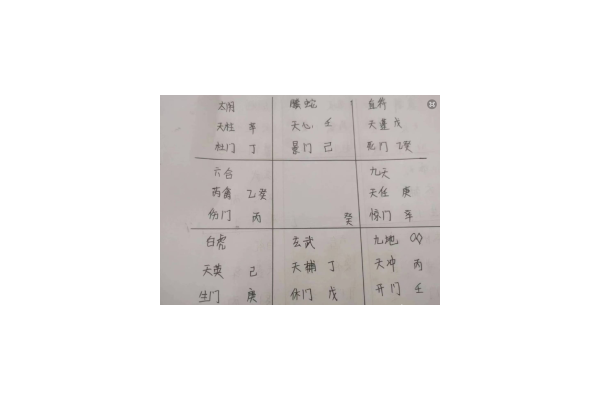 太阴 腾蛇 直符
天柱 辛 天心 壬 天蓬 戊
杜门 丁 景门 己 死门 乙癸
六合 九天
芮禽 乙癸 天任 庚
伤门 丙 癸 惊门 辛
白虎 玄武 九地
天英 己 天辅 丁 天冲 丙
生门 庚 休门 戊 开门 壬